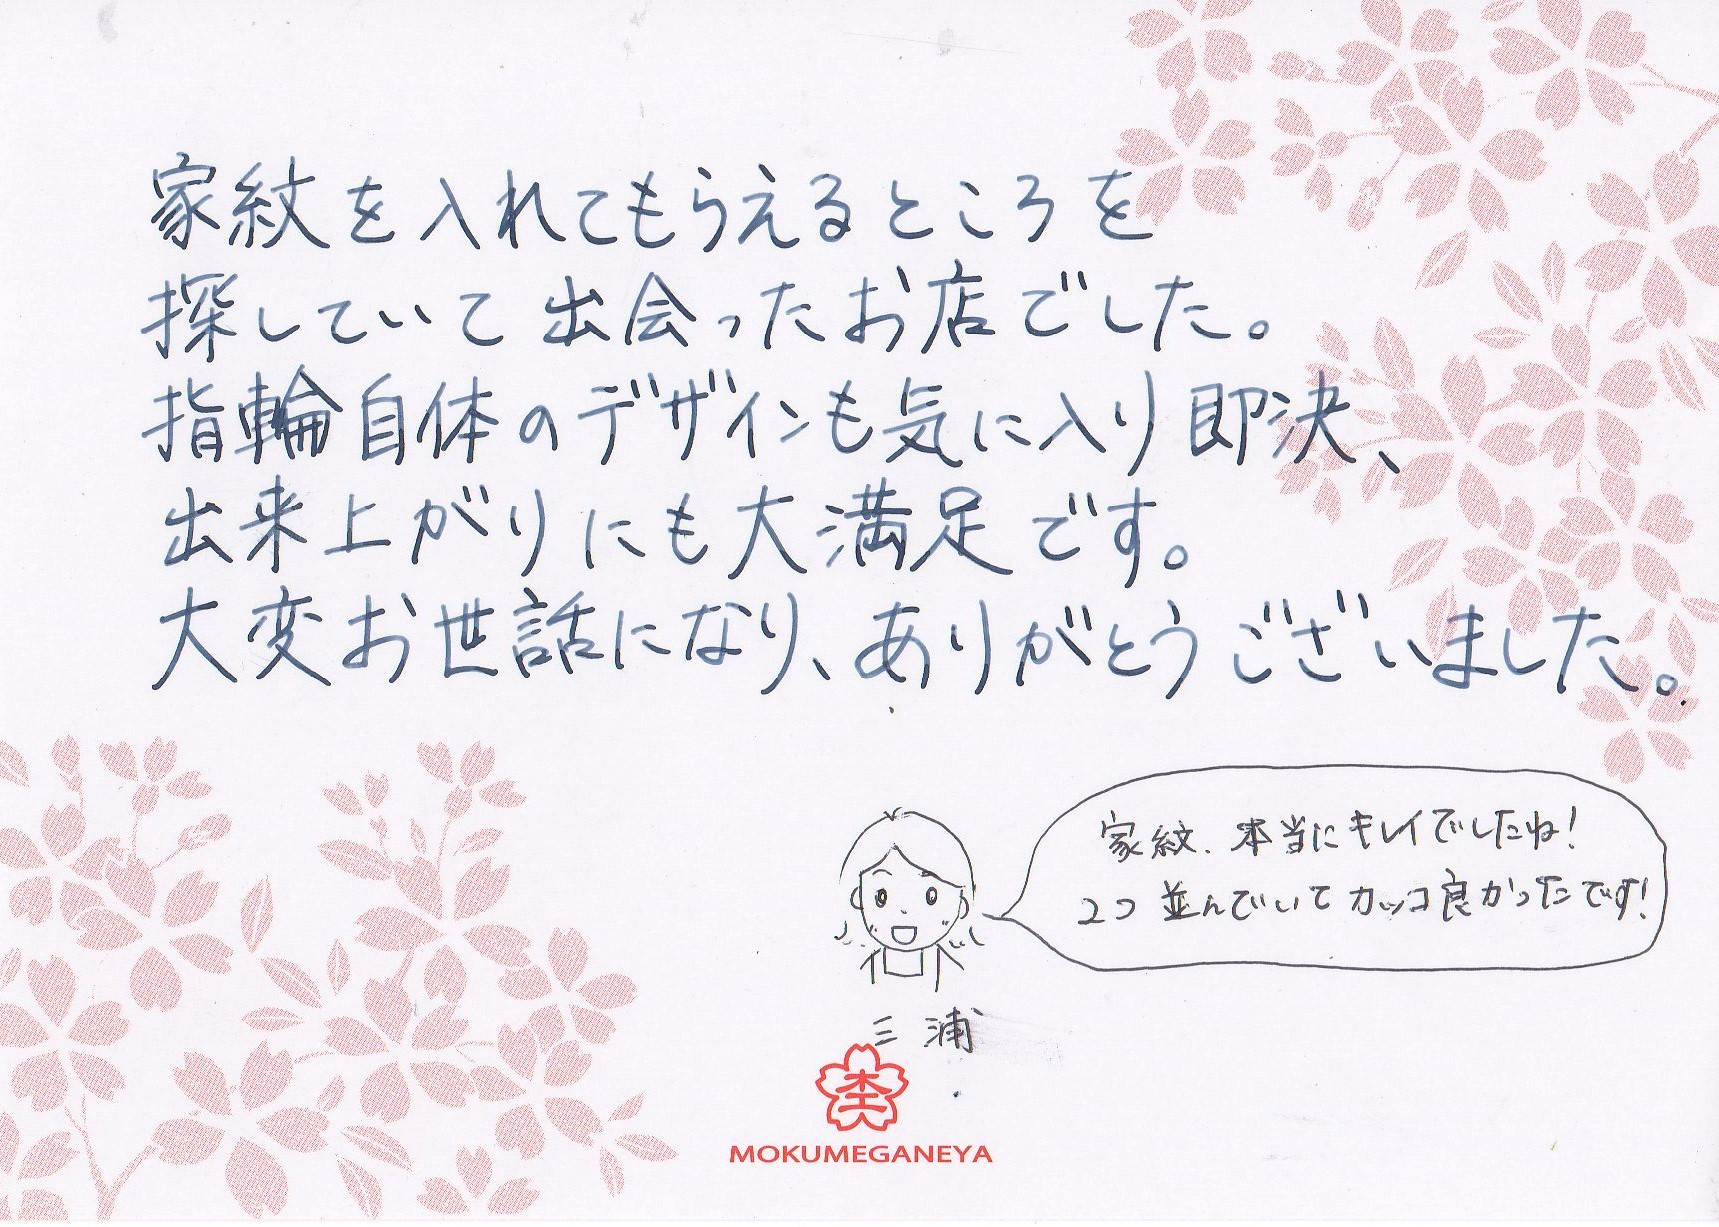 家紋を入れてもらえるところを
探していて出会ったお店でした。
指輪自体のデザインも気に入り即決、
出来上がりにも大満足です。
大変お世話になり、ありがとうございました。
家紋、本当にキレイでしたね!
2つ並んでいてカッコ良かったです!
三浦
杢
MOKUMEGANEYA